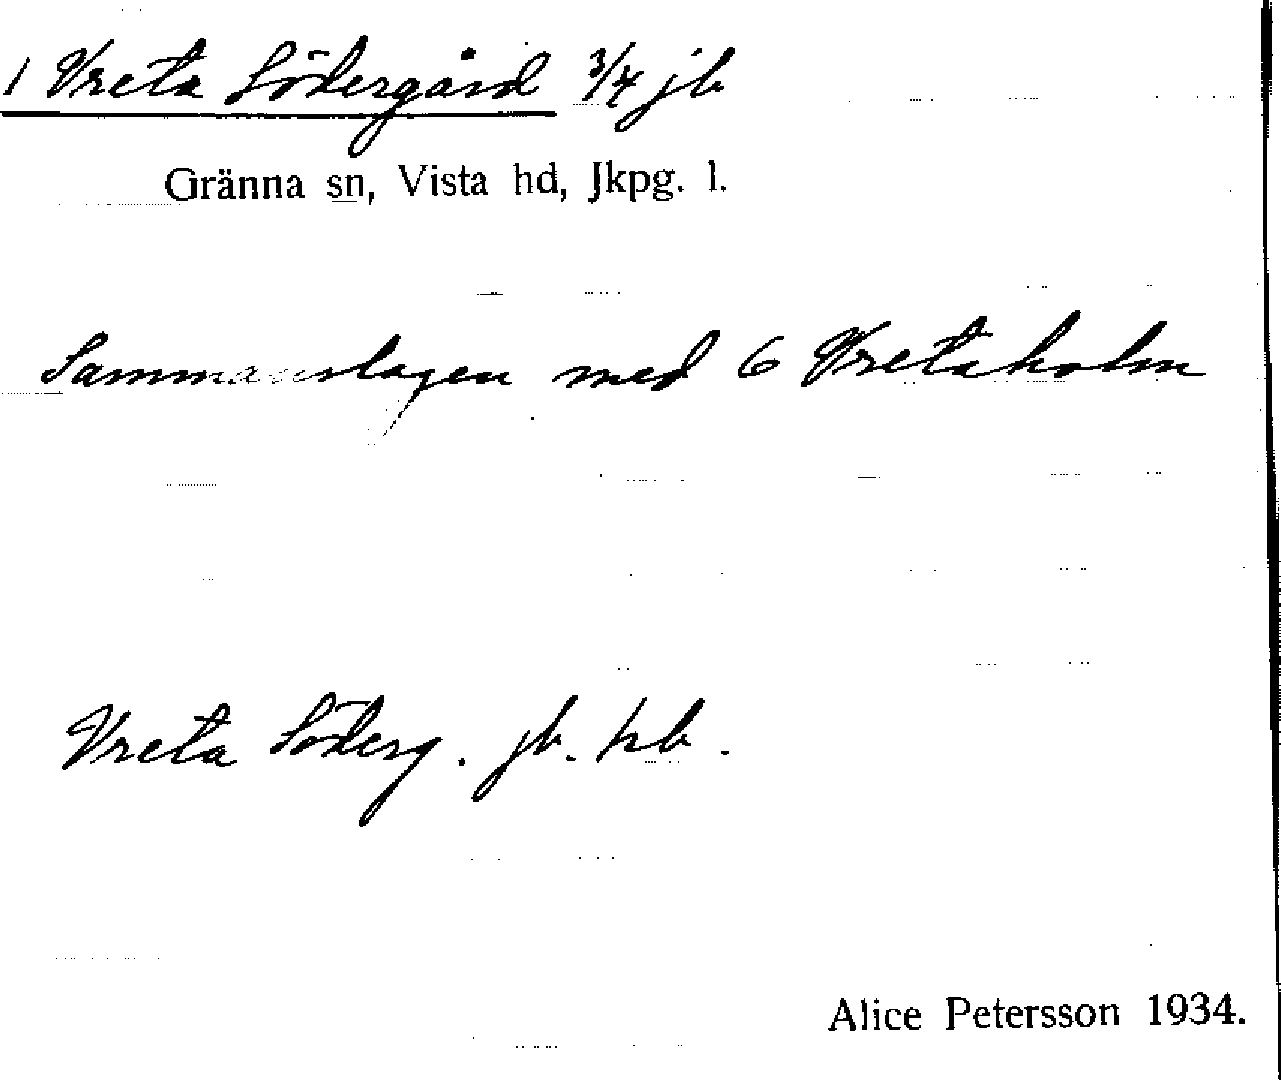 1 Vreta Södergård 3/4 jb
Gränna sn, Vista hd, Jkpg. l.
Sammanslagen med 6 Vretaholm
Vreta Söderg. jb. hb.
Alice Petersson 1934.